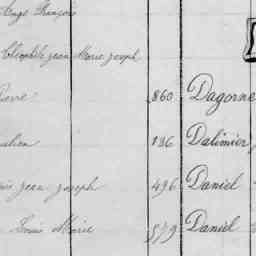 Ange François
Théophile Jean Marie Joseph
Pierre
860 Dagorne
Julien
186 Dalimier
Jean Joseph
496 Daniel
Louis Marie
579 Daniel